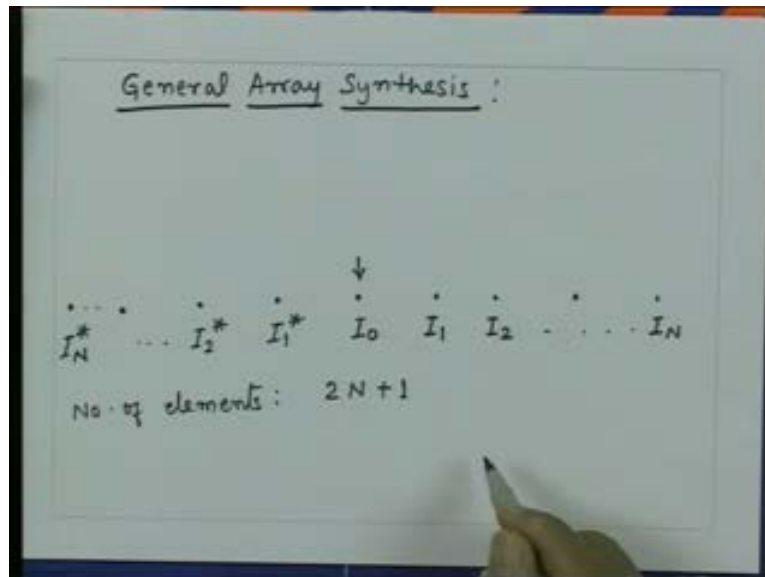 General Array Synthesis :
↓
. . . . . . . . . . .
I_N* ... I_2* I_1* I_0 I_1 I_2 . . . . . I_N
No. of elements : 2N+1